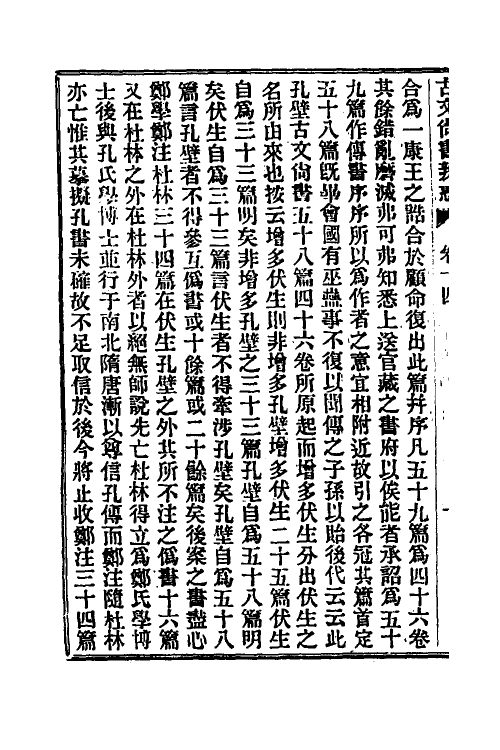 古文尚書
卷十四
合爲一康王之誥合於顧命復出此篇幷序凡五十九篇爲四十六卷
其餘錯亂磨滅弗可弗知悉上送官藏之書府以俟能者承詔爲五十
九篇作傳書序序所以爲作者之意宜相附近故引之各冠其篇首定
五十八篇旣畢會國有巫蠱事不復以聞傳之子孫以貽後代云云此
孔壁古文尙書五十八篇四十六卷所原起而增多伏生分出伏生之
名所由來也按云增多伏生則非增多孔壁增多伏生二十五篇伏生
自爲三十三篇明矣非增多孔壁之三十三篇孔壁自爲五十八篇明
矣伏生自爲三十三篇言伏生者不得牽涉孔壁矣孔壁自爲五十八
篇言孔壁者不得參互僞書或十餘篇或二十餘篇矣後案之書盡心
鄭學鄭注杜林三十四篇在伏生孔壁之外其所不注之僞書十六篇
又在杜林之外在杜林外者以絕無師說先亡杜林得立爲鄭氏學博
士後與孔氏學博士並行于南北隋唐漸以尊信孔傳而鄭注隨杜林
亦亡惟其摹擬孔書未確故不足取信於後今將止收鄭注三十四篇